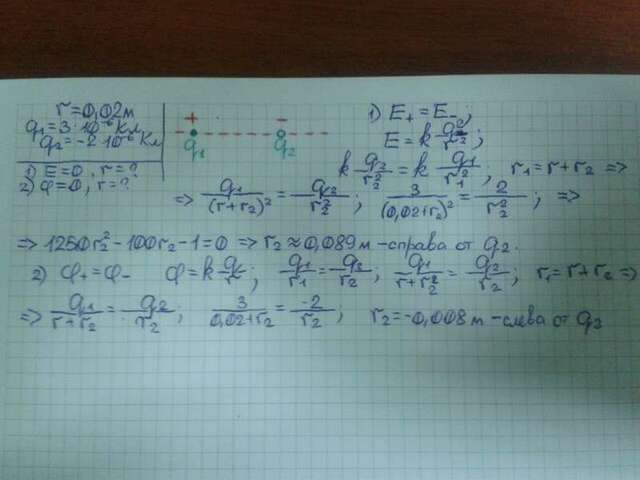 r = 0,02 м
q₁ = 3·10⁻⁶ Кл
q₂ = -2·10⁻⁶ Кл
1) E = 0, r = ?
2) φ = 0, r = ?
+ −
q₁ q₂
1) E₊ = E₋;
E = k q/r²;
k q₂/r₂² = k q₁/r₁²; r₁ = r + r₂ =>
=> q₁/(r+r₂)² = q₂/r₂²; 3/(0,02+r₂)² = 2/r₂²; =>
=> 1250r₂² - 100r₂ - 1 = 0 => r₂ ≈ 0,089 м - справа от q₂.
2) φ₊ = φ₋ φ = k q/r; q₁/r₁ = q₂/r₂; q₁/r+r₂² = q₂/r₂; r₁ = r + r₂ =>
=> q₁/r+r₂ = q₂/r₂; 3/0,02+r₂ = -2/r₂; r₂ = -0,008 м - слева от q₂